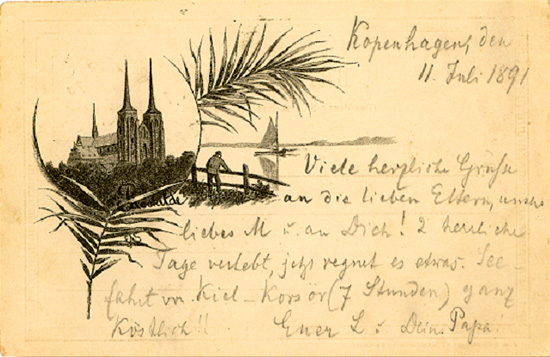 Kopenhagen, den
11. Juli 1891
Viele herzliche Grüße
Roeskilde
an die lieben Eltern, unsre
liebes M u. an Dich! 2 herrliche
Tage verlebt, jetzt regnet es etwas. See-
fahrt von Kiel - Korsör (7 Stunden) ganz
Köstlich!! Euer L. u. Dein Papa!